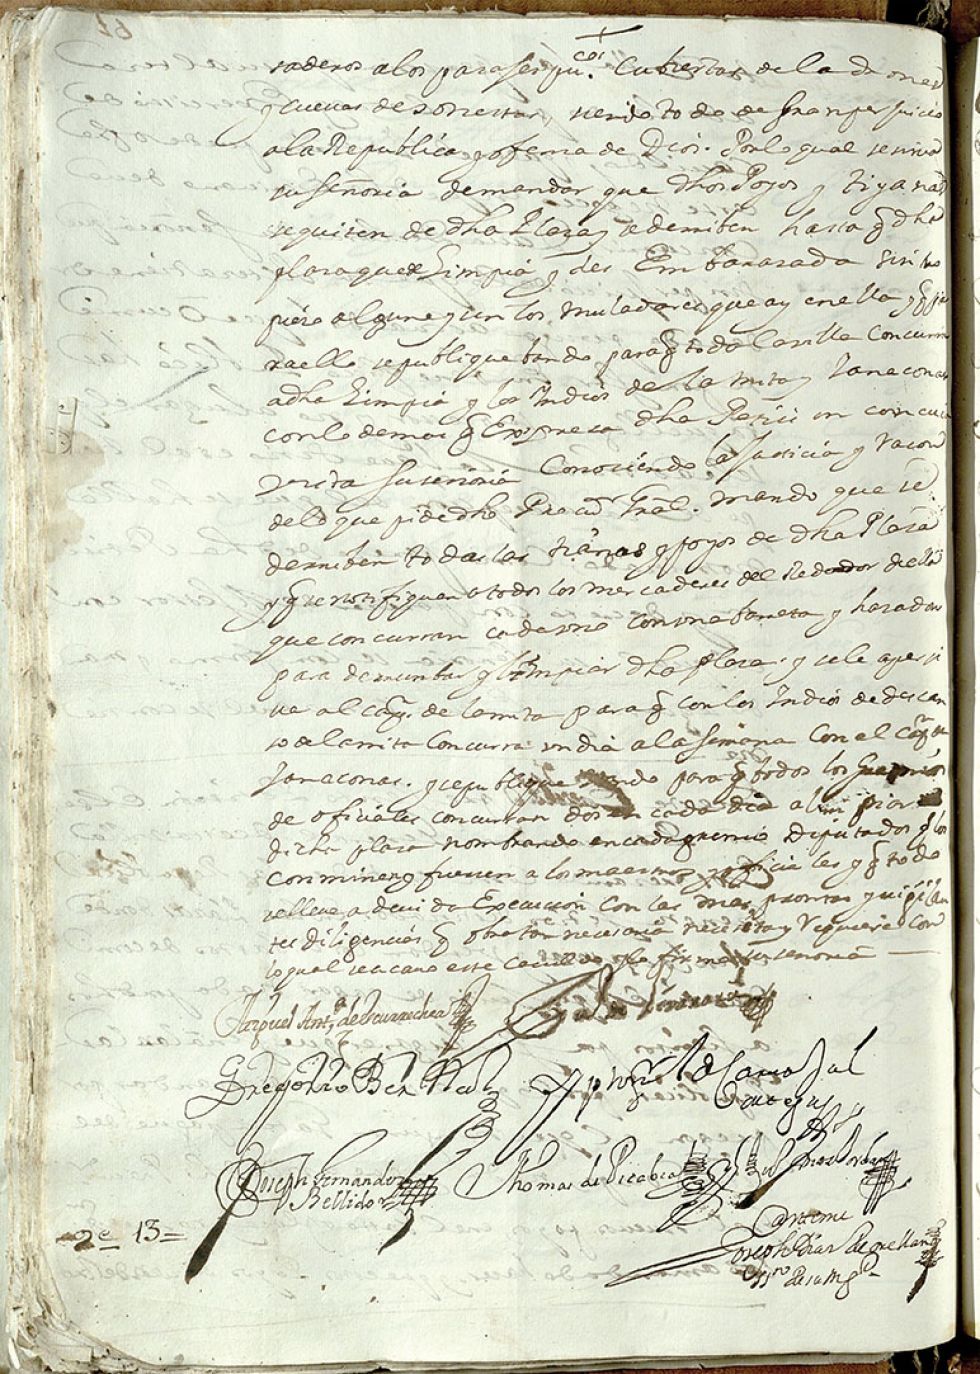 raderos a los pasaserpu.cos Cubiertas de la de
y cuevas de siendo todo de gran perjuicio
a la Republica y ofensa de Dios. Por lo qual se sirva
su Señoria de mandar que dhos Poyos y tiyanas
se quiten de dha Plaza y se demiben hassa q dha
plaza quede Limpia y des Embarasada sin
alguno y sin los muladares que ay en ella y q
ra ello se publique bando para q toda la villa Concurra
a dha Limpia y los Indios de la mita y Yanaconas
con lo demas q Expresa dha Petision con cuia
vista su señoria Conosiendo la Justicia y racon
de lo que pide dho Procu.r Gral. mando que se
demiben todas las tianas y poyos de dha Plaza
y q se notifiquen a todos los mercaderes del Rededor de ella
que concurran cada uno con una barreta y hazadon
para demumbar y limpiar dha plaza, y se le aperci
va al cap.n de la mita para q con los Indios de descan
so de la mita Concurra un dia a la semana Con el cap.n de
Yanaconas. y se publique vando para q todos los Gremios
de oficiales concurran dos en cada dia a limpiar
dicha plaza nombrando en cada gremio Diputados q los
con minen y fuersen a los maestros y oficiales y q todo
se lleve a devida Execusion con las mas promtas y vigilan
tes diligencias q obra tan necesaria necesita y requiere Con
lo qual se acavo este Cavildo y lo firmo su señoria
Miguel Ant.o de Escurrechea
Gregorio Ben
de Carvajal
Joseph Fernandez
Bellido
Thomas de Picabea
Ante mi
Joseph Dias de Orellana
Ess.no de su Mg.d
2e 13=